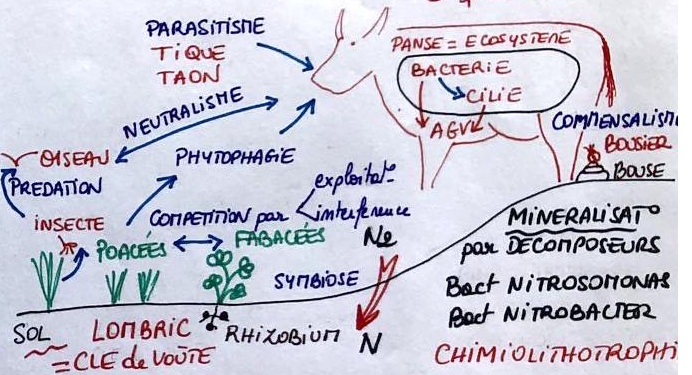 PARASITISME
TIQUE
TAON
PANSE = ECOSYSTEME
BACTERIE
CILIE
AGV
NEUTRALISME
COMMENSALISM
BOUSIER
BOUSE
OISEAU
PHYTOPHAGIE
PREDATION
INSECTE
COMPETITION par
exploitat°
interférence
POACÉES
FABACÉES
SYMBIOSE
MINERALISAT°
par DECOMPOSEURS
Bact NITROSOMONAS
Bact NITROBACTER
CHIMIOLITHOTROPHI
N
SOL
LOMBRIC
= CLE de VOÛTE
RHIZOBIUM